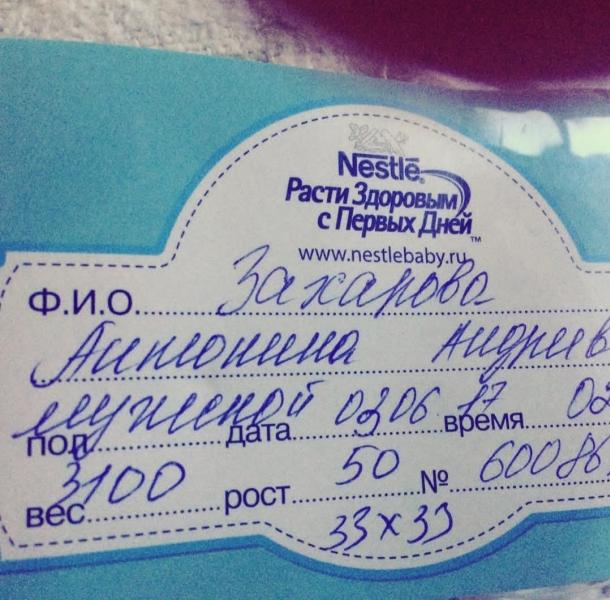 Nestlé®
Расти Здоровым
с Первых Дней™
www.nestlebaby.ru
Ф.И.О. Захарова
Антонина Андреев
пол мужской дата 02 06 17 время 02
вес 3100 рост 50 № 60086
33x33